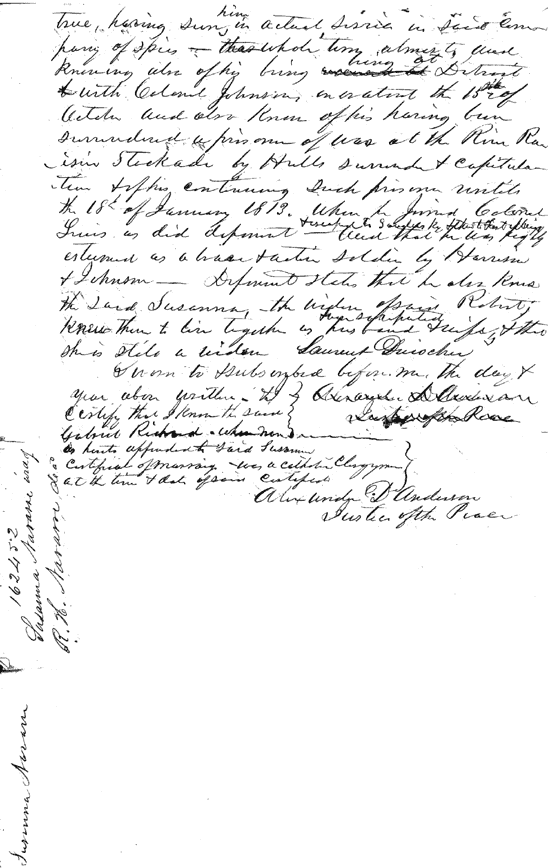 him
true, having seen in actual service in said Com
pany of spies – that whole time almost, and
being at
knowing also of his being Detroit
& with Colonel Johnson, on or about the 15th of
October and also knew of his having been
surrendered a prisoner of war at the River Rai
isin Stockade by Hulls surrender & Capitula
tion & of his continuing such prisoner until
the 18th of January 1813. When he joined Colonel
Lewis as did deponent – and that he was highly
esteemed as a brave & active soldier by Harrison
& Johnson – Deponent states that he also knows
the said, Susanna, the widow of said Robert,
knew them to live together as husband & wife, & that
she is still a widow Laurent Durocher
Sworn to & subscribed before me, the day &
year above written – & I Alexander D Anderson
Certify that I know the said Justice of the Peace
Gabriel Richard – whose name
is hereto appended to said Susanna
Certificate of marriage – was a Catholic Clergyman
at the time & date of said Certificate
Alexander D Anderson
Justice of the Peace
162452
Susanna Navarre wid of
R. H. Navarre, dec
Susanna Navarre